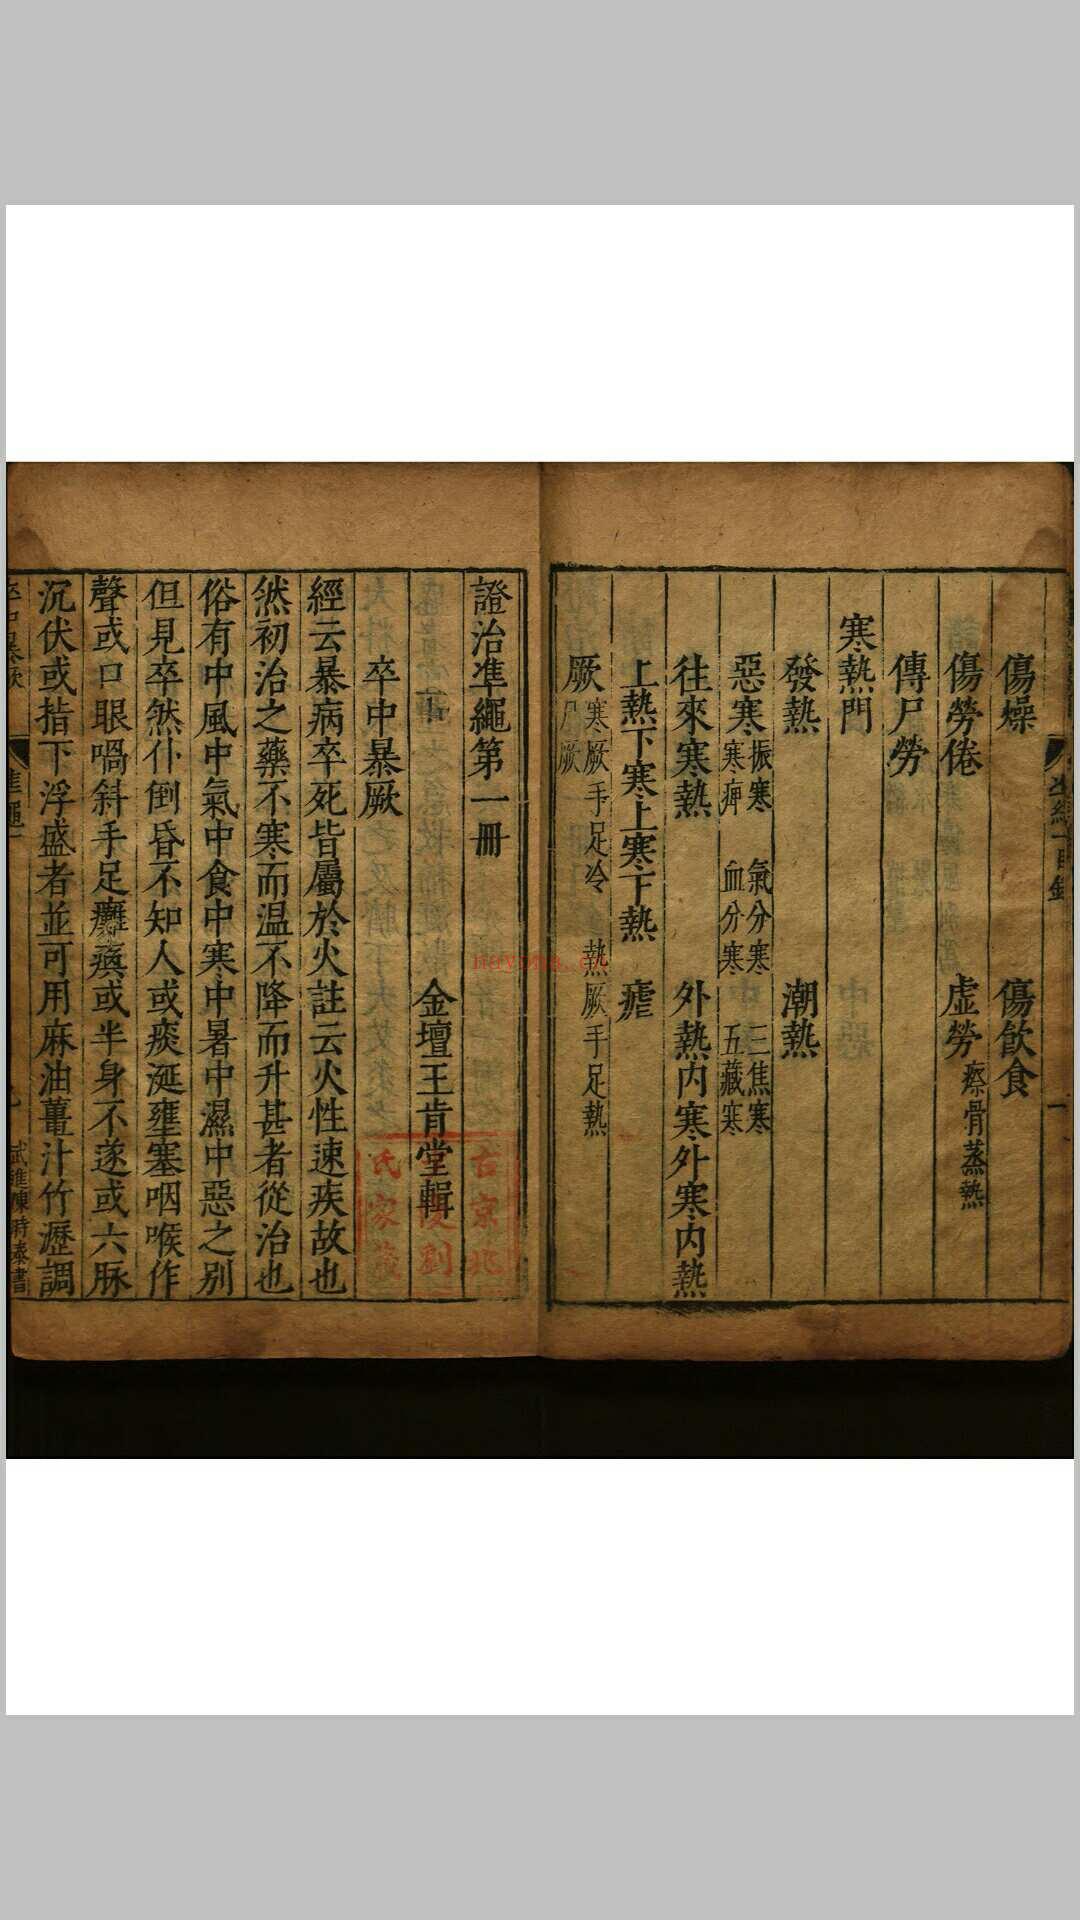 傷燥 傷飲食
傷勞倦 虛勞 瘵骨蒸熱
傳尸勞
寒熱門
發熱 潮熱
惡寒 振寒 氣分寒 三焦寒
寒痺 血分寒 五藏寒
往來寒熱 外熱內寒外寒內熱
上熱下寒上寒下熱 瘧
厥 寒厥手足冷 熱厥手足熱
尸厥
證治準繩第一冊
金壇王肯堂輯
卒中暴厥
經云暴病卒死皆屬於火註云火性速疾故也
然初治之藥不寒而温不降而升甚者從治也
俗有中風中氣中食中寒中暑中濕中惡之別
但見卒然仆倒昏不知人或痰涎壅塞咽喉作
聲或口眼喎斜手足癱瘓或半身不遂或六脉
沉伏或指下浮盛者並可用麻油薑汁竹瀝調
卒中暴厥
武進陳時泰書
古京兆
劉
氏家藏
nayona.cn